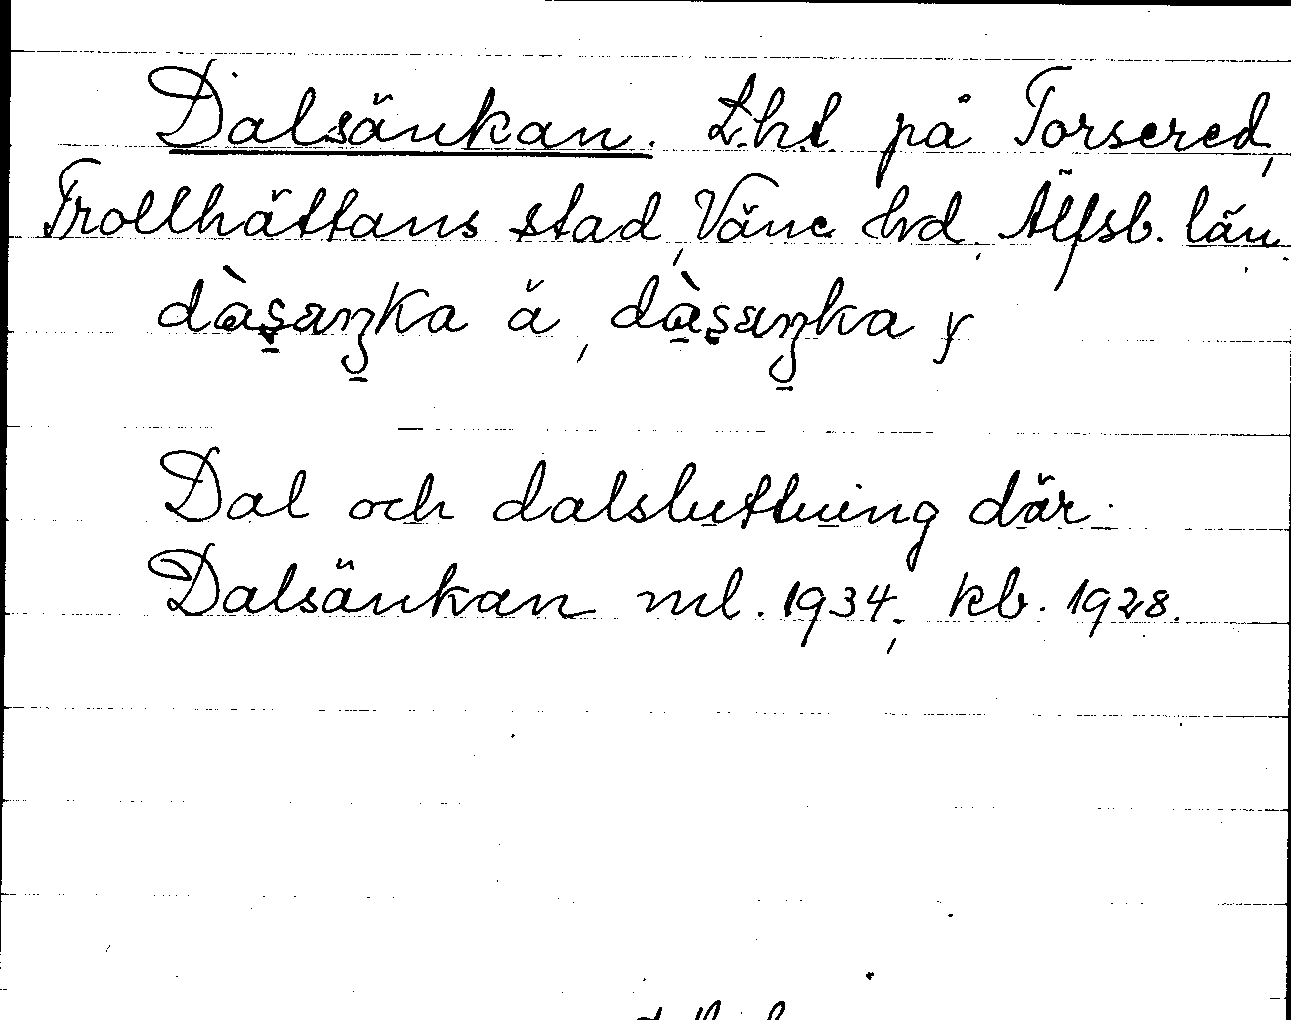 Dalsänkan. Lht på Torsered,
Trollhättans stad, Väne hd. Älfsb. län.
dàsaŋka ä, dàsaŋka y
Dal och dalsluttning där.
Dalsänkan ml. 1934, kb. 1928.